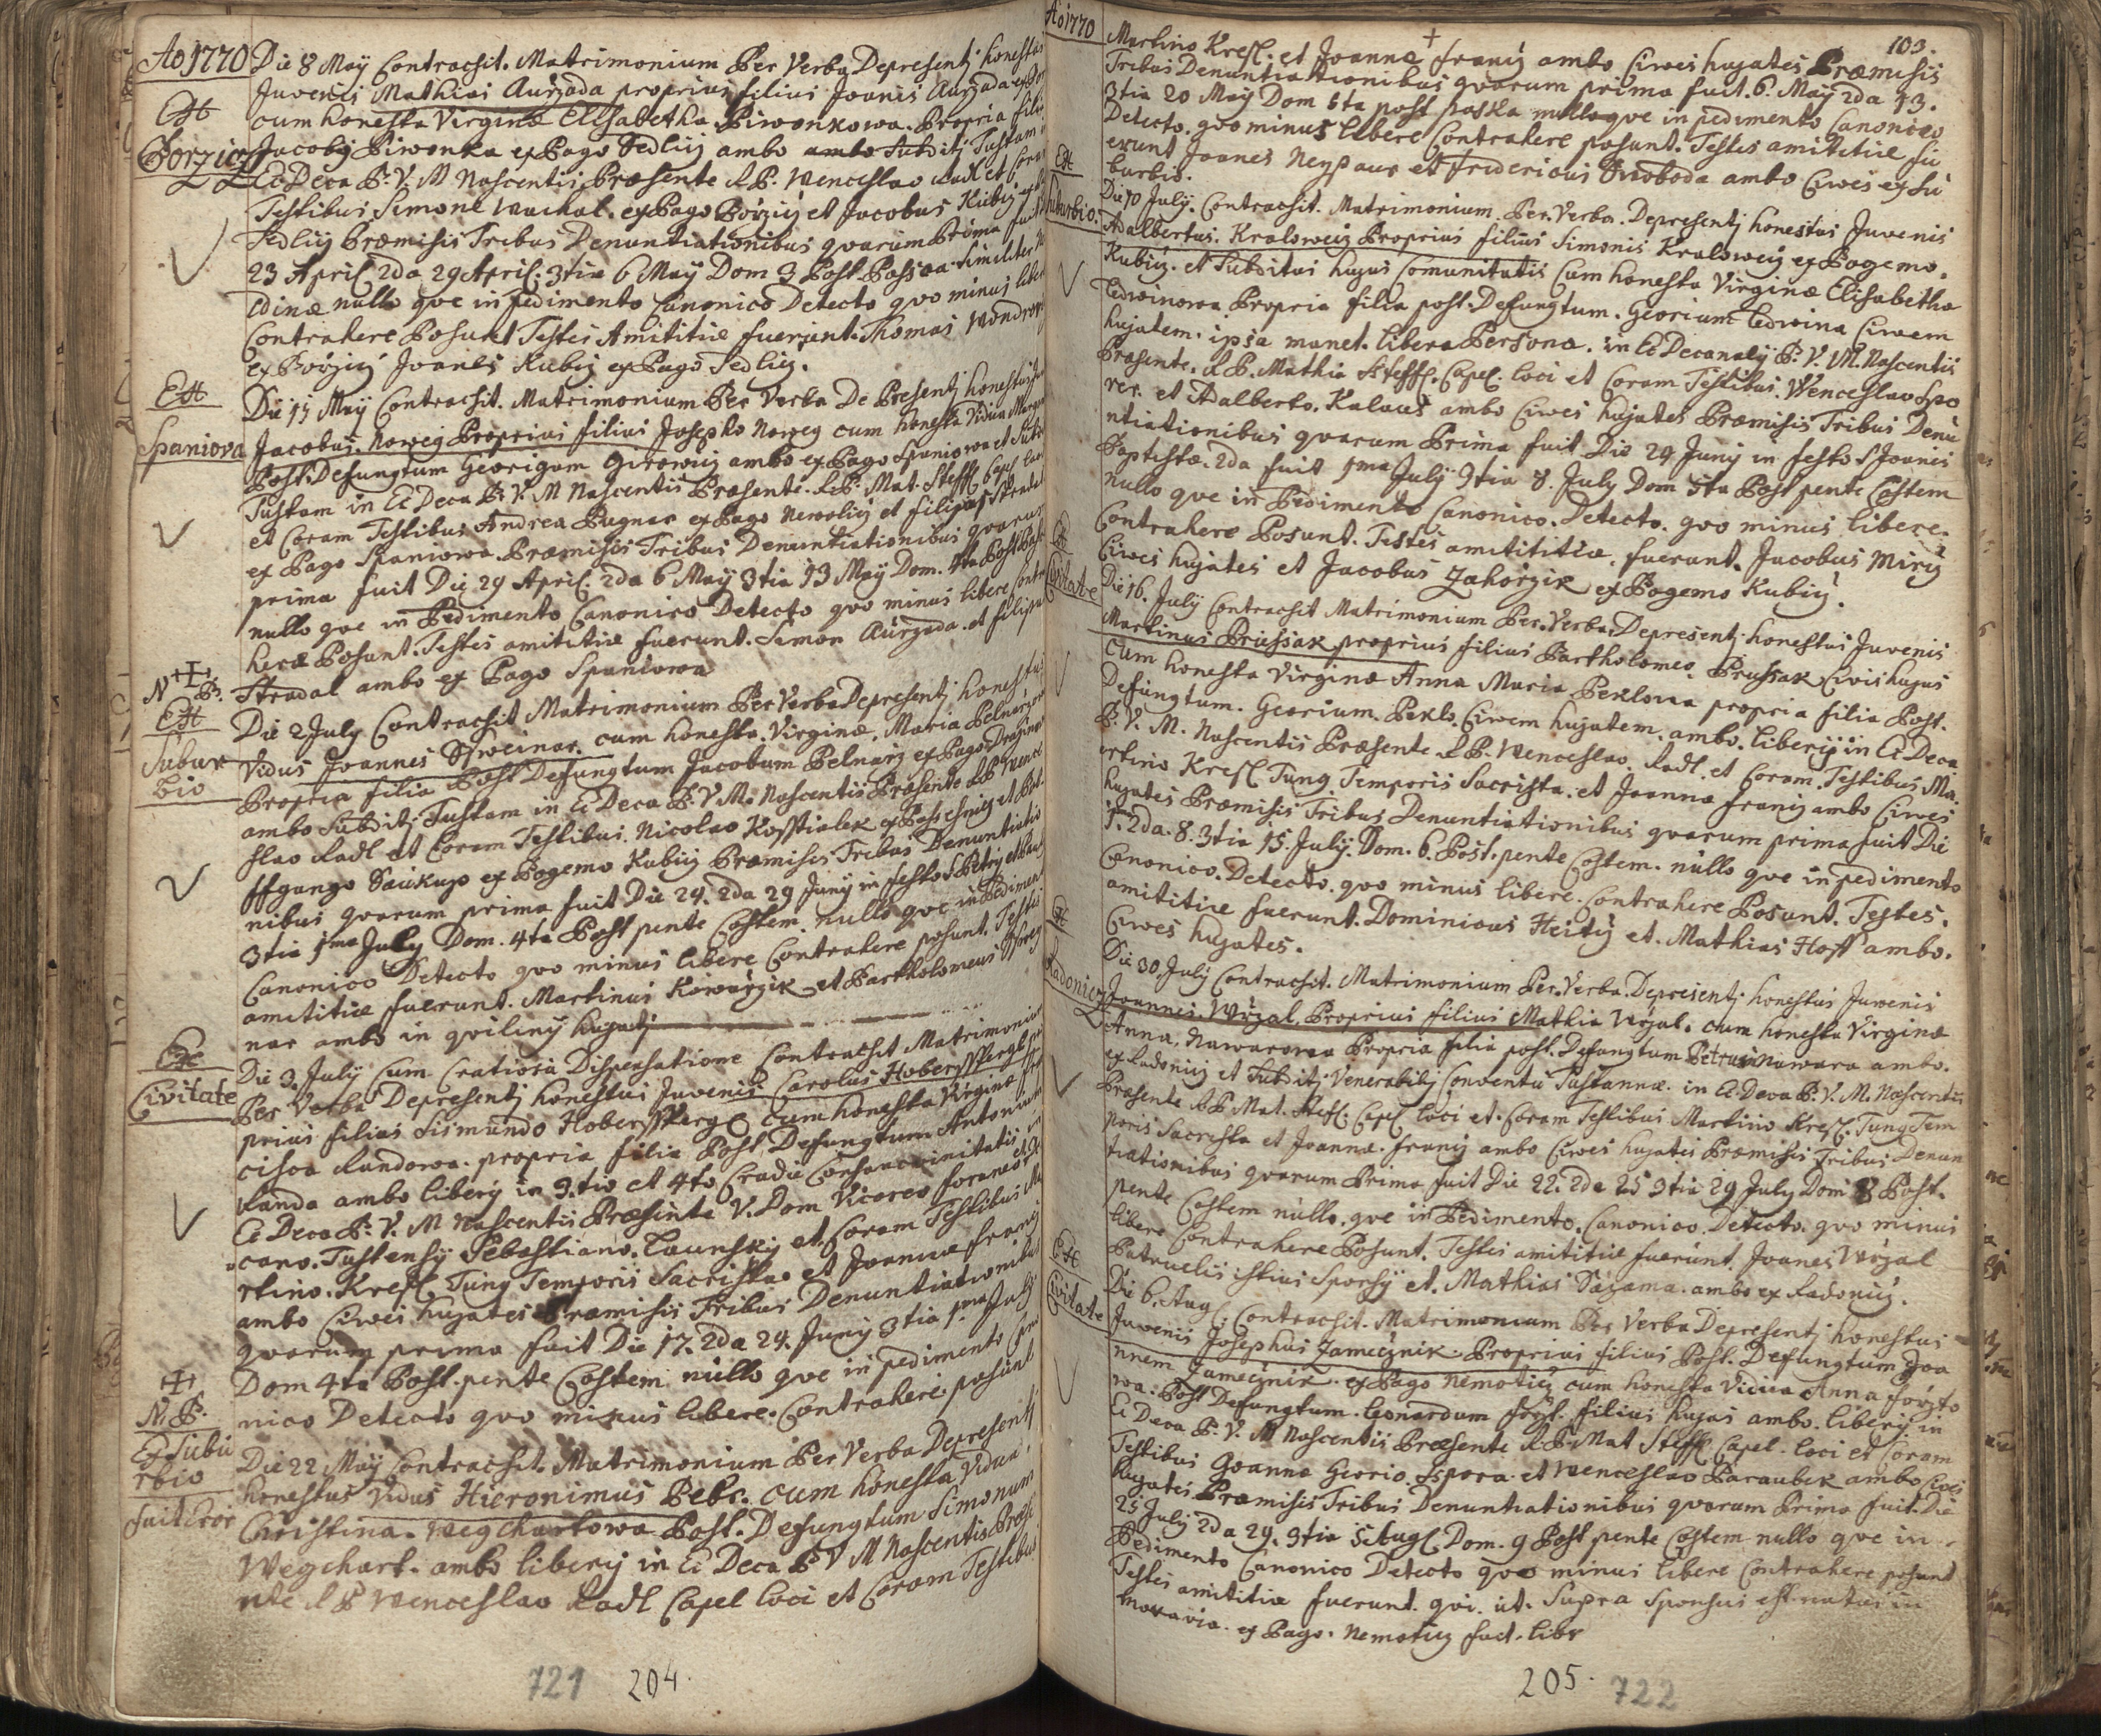 Ao 1770 Die 8 Maÿ Contrachit. Matrimonium Per Verba Depresentj honestus
Juvenis Mathias Aurzada proprius filius Joanis Aurzada ex
Ex
cum honesta Virginæ Elisabetha. Piwonkowa. Propria filia
Borzicz Jacobÿ Piwonka ex Pago Sedlicz ambo ambo Subditj Tustam
Ec Deca B: V. M Nascentis Præsente A. P. Wenceslao Radl et Coram
Testibus Simone Wachal. ex Pago Borzicz et Jacobus Kubicz
Sedlicz Præmisis Tribus Denuntiationibus qvarum Prima fuit
23 April 2da 29 April. 3tia 6 Maÿ Dom 3 Post Pascoa similiter
nullo qve in pedimento Canonico Detecto qvo minus libere
Contrahere Posunt Testes Amititiæ fuerunt. Thomas Wondrow
ex Borzicz Joanes Kubicz ex Pago Sedlicz.
Ex
Die 15 Maÿ Contrachit. Matrimonium Per Verba De Presentj honestus
Spaniova Jacobus. Noweg Proprius filius Josepho Noweg cum honesta Vidua
Post Defungtum Georigum Girowicz ambo ex Pago Spaniowa et
Tustam in Ec Deca B: V. M Nascentis Præsente. R. P. Mat. Steffl Capl
et Coram Testibus Andrea Bugnar ex Pago Nemolicz et filipus Stradal
ex Pago Spaniowa Præmisis Tribus Denuntiationibus qvarum
prima fuit Die 29 April. 2da 6 Maÿ 3tia 13 Maÿ Dom. 4ta Post
nullo qve in Pedimento Canonico Detecto qvo minus libere
heræ Posunt. Testes amititiæ fuerunt. Simon Aurzada. et filipus
Stradal ambo ex Pago Spaniowa
N B.
Ex
Die 2 July Contrachit Matrimonium Per Verba Depresentj honestus
Subur
bio
Vidus Joannes Schweinar. cum honesta. Virginæ. Maria Pelnarz
Propria filia Post Defungtum Jacobum Pelnarz ex Pago
ambo Subditj Tustam in Ec Deca B: V. M. Nascentis Præsente R P Wence
slao Radl et Coram Testibus. Nicolao Kosstialek ex
ffgango Saukup ex Pogemo Kubicz Præmisis Tribus Denuntiatio
nibus qvarum prima fuit Die 24. 2da 29 Junÿ in festo S Petrÿ et
3tia 1ma July Dom. 4ta Post pente Costem nullo qve in Pedimento
Canonico Detecto qvo minus libere Contrahere posunt. Testes
amititiæ fuerunt. Martinus Kowarzik et Bartholomeus Schwej
nar ambo in qvilinÿ hugatj
Ex
Civitate
Die 3. July Cum Cratiosa Dispensatione Contrachit Matrimonium
Per Verba Depresentj honestus Juvenis Carolus Hobersspergl
prius filius Sismundo Hobersspergl cum honesta Virginæ
cisca Randowa. propria filia Post Defungtum Antonium
Randa ambo liberÿ in 3.tio et 4to Cradie Consancvinitatis in
Ec Deca B: V. M Nascentis Præsente V. Dom Vicareo foraneo et De
cano. Tustensÿ Sebastiano. Launskÿ et Coram Testibus Ma
rtino. Kresl Tung Temporis Sacrista et Joannæ franÿ
ambo Ciwes hugates Præmisis Tribus Denuntiationibus
qvarum prima fuit Die 17. 2da 24. Junÿ 3tia 1.ma July
Dom 4ta Post pente Costem nullo qve in pedimento
nico Detecto qvo minus libere. Contrahere posunt
N. B.
Ex Subu
rbio
fuit Error
Die 22 Maÿ Contrachit. Matrimonium Per Verba Depresentj
honestus Vidus Hieronimus Pebr. cum honesta Vidua
Christina. Wegchartowa Post. Defungtum Simonum
Wegchart. ambo liberÿ in Ec Deca B V M Nascentis Præse
nte R P Wenceslao Radl Capel loci et Coram Testibus
721 204.
Ao 1770
103.
Martino Kresl. et Joannæ franÿ ambo Ciwes hugates Præmisis
Tribus Denuntiationibus qvarum prima fuit. 6. Maÿ 2da 13.
3tia 20 Maÿ Dom 6ta post paska nullo qve in pedimento Canonico
Detecto. qvo minus libere Contrahere posunt. Testes amititiæ fu
erunt Joanes Neypaur et Fridericus Swoboda ambo Ciwes ex Su
burbio.
Ex
Suburbio.
Die 10 July. Contrachit. Matrimonium. Per. Verba. Depresentj honestus Juvenis
Adalbertus. Kraloweg Proprius filius Simonis Kraloweg ex Pogemo.
Kubicz. et Subditus hugus Comunitatis Cum honesta Virginæ Elisabetha
Ledwinowa Propria filia post. Defungtum. Georium Ledwina Ciwem
hugatem. ipsa manet. libera Persona. in Ec Decanalÿ B: V. M. Nascentis
Præsente. R P. Mathia Steffl. Capel. loci et Coram Testibus. Wenceslao Spo
rer. et Adalberto. Kalaus ambo Ciwes hugates Præmisis Tribus Denu
ntiationibus qvarum Prima fuit Die 24 Junÿ in festo S Joanis
Baptistæ. 2da fuit 1ma July 3tia 8. July Dom 5ta Post pente Costem
nullo qve in Pedimento Canonico. Detecto. qvo minus libere.
Contrahere Posunt. Testes amititiæ. fuerunt. Jacobus Mirÿ
Ciwes hugates et Jacobus Zahorzik ex Pogemo Kubicz.
Ex
Civitate
Die 16. July Contrachit Matrimonium Per. Verba. Depresentj honestus Juvenis
Martinus Prussak proprius filius Bartholomeo. Prussak Civis hugus
cum honesta Virginæ Anna Maria Peklowa propria filia Post.
Defungtum. Georium. Peklo. Ciwem hugatem. ambo. liberÿ in Ec Deca
B. V. M. Nascentis Præsente R P. Wenceslao. Radl. et Coram. Testibus Ma.
rtino Kresl Tung. Temporis Sacrista. et Joannæ franÿ ambo Ciwes
hugates Præmisis Tribus Denuntiationibus qvarum prima fuit Die
1ma 2da. 8. 3tia 15. July. Dom. 6. Post. pente Costem. nullo qve in pedimento
Canonico. Detecto. qvo minus libere. Contrahere Posunt. Testes.
amititiæ fuerunt. Dominicus Heitÿ et. Mathias Hoff ambo.
Ciwes hugates.
Ex
Radonicz
Die 30. July Contrachit. Matrimonium Per. Verba. Depresentj honestus Juvenis
Joannes. Wogal. Proprius filius Mathia Wogal. cum honesta Virginæ
Anna. Nawarowa Propria filia post. Defungtum Petrus Nawara ambo.
ex Radonicz et Subditj Venerabilÿ Conventu Tustannæ. in Ec Deca B: V. M. Nascentis
Præsente R P Mat. Stefl. Capl loci et Coram Testibus Martino Kresl. Tung Tem
poris Sacresta et Joannæ. franÿ ambo Ciwes hugates Præmisis Tribus Denun
tiationibus qvarum Prima fuit Die 22. 2da 25 3tia 29 July Dom 8 Post.
pente Costem nullo. qve in Pedimento. Canonico. Detecto. qvo minus
libere Contrahere Posunt. Testes amititiæ fuerunt. Joanes Wogal
Patruelis istius Sponsÿ et. Mathias Sazama. ambo ex Radonicz.
Ex
Civitate
Die 6. Aug. Contrachit. Matrimonium Per Verba Depresentj honestus
Juvenis Josephus Zamecznik. Proprius filius Post. Defungtum Joa
nnem Zamecznik. ex Pago Nemoticz cum honesta Vidua Anna forzto
wa. Post Defungtum. Leonardum forst. filius hugus ambo. liberÿ. in
Ec Deca B. V. M Nascentis Præsente R. P. Mat Steffl Capel. loci et Coram
Testibus Joanna Georio. Sspora. et Wenceslao Paraubek ambo Ciwes
hugates. Præmisis Tribus Denuntiationibus qvarum Prima fuit. Die
25 July 2da 29. 3tia 5 Augl. Dom. 9 Post pente Costem nullo qve in.
Pedimento Canonico Detecto qvo minus libere Contrahere posunt
Testes amititiæ fuerunt. qvi. ut. Supra Sponsus est natus in
Moravia. ex Pago. Nemoticz fuit. libr
205. 722